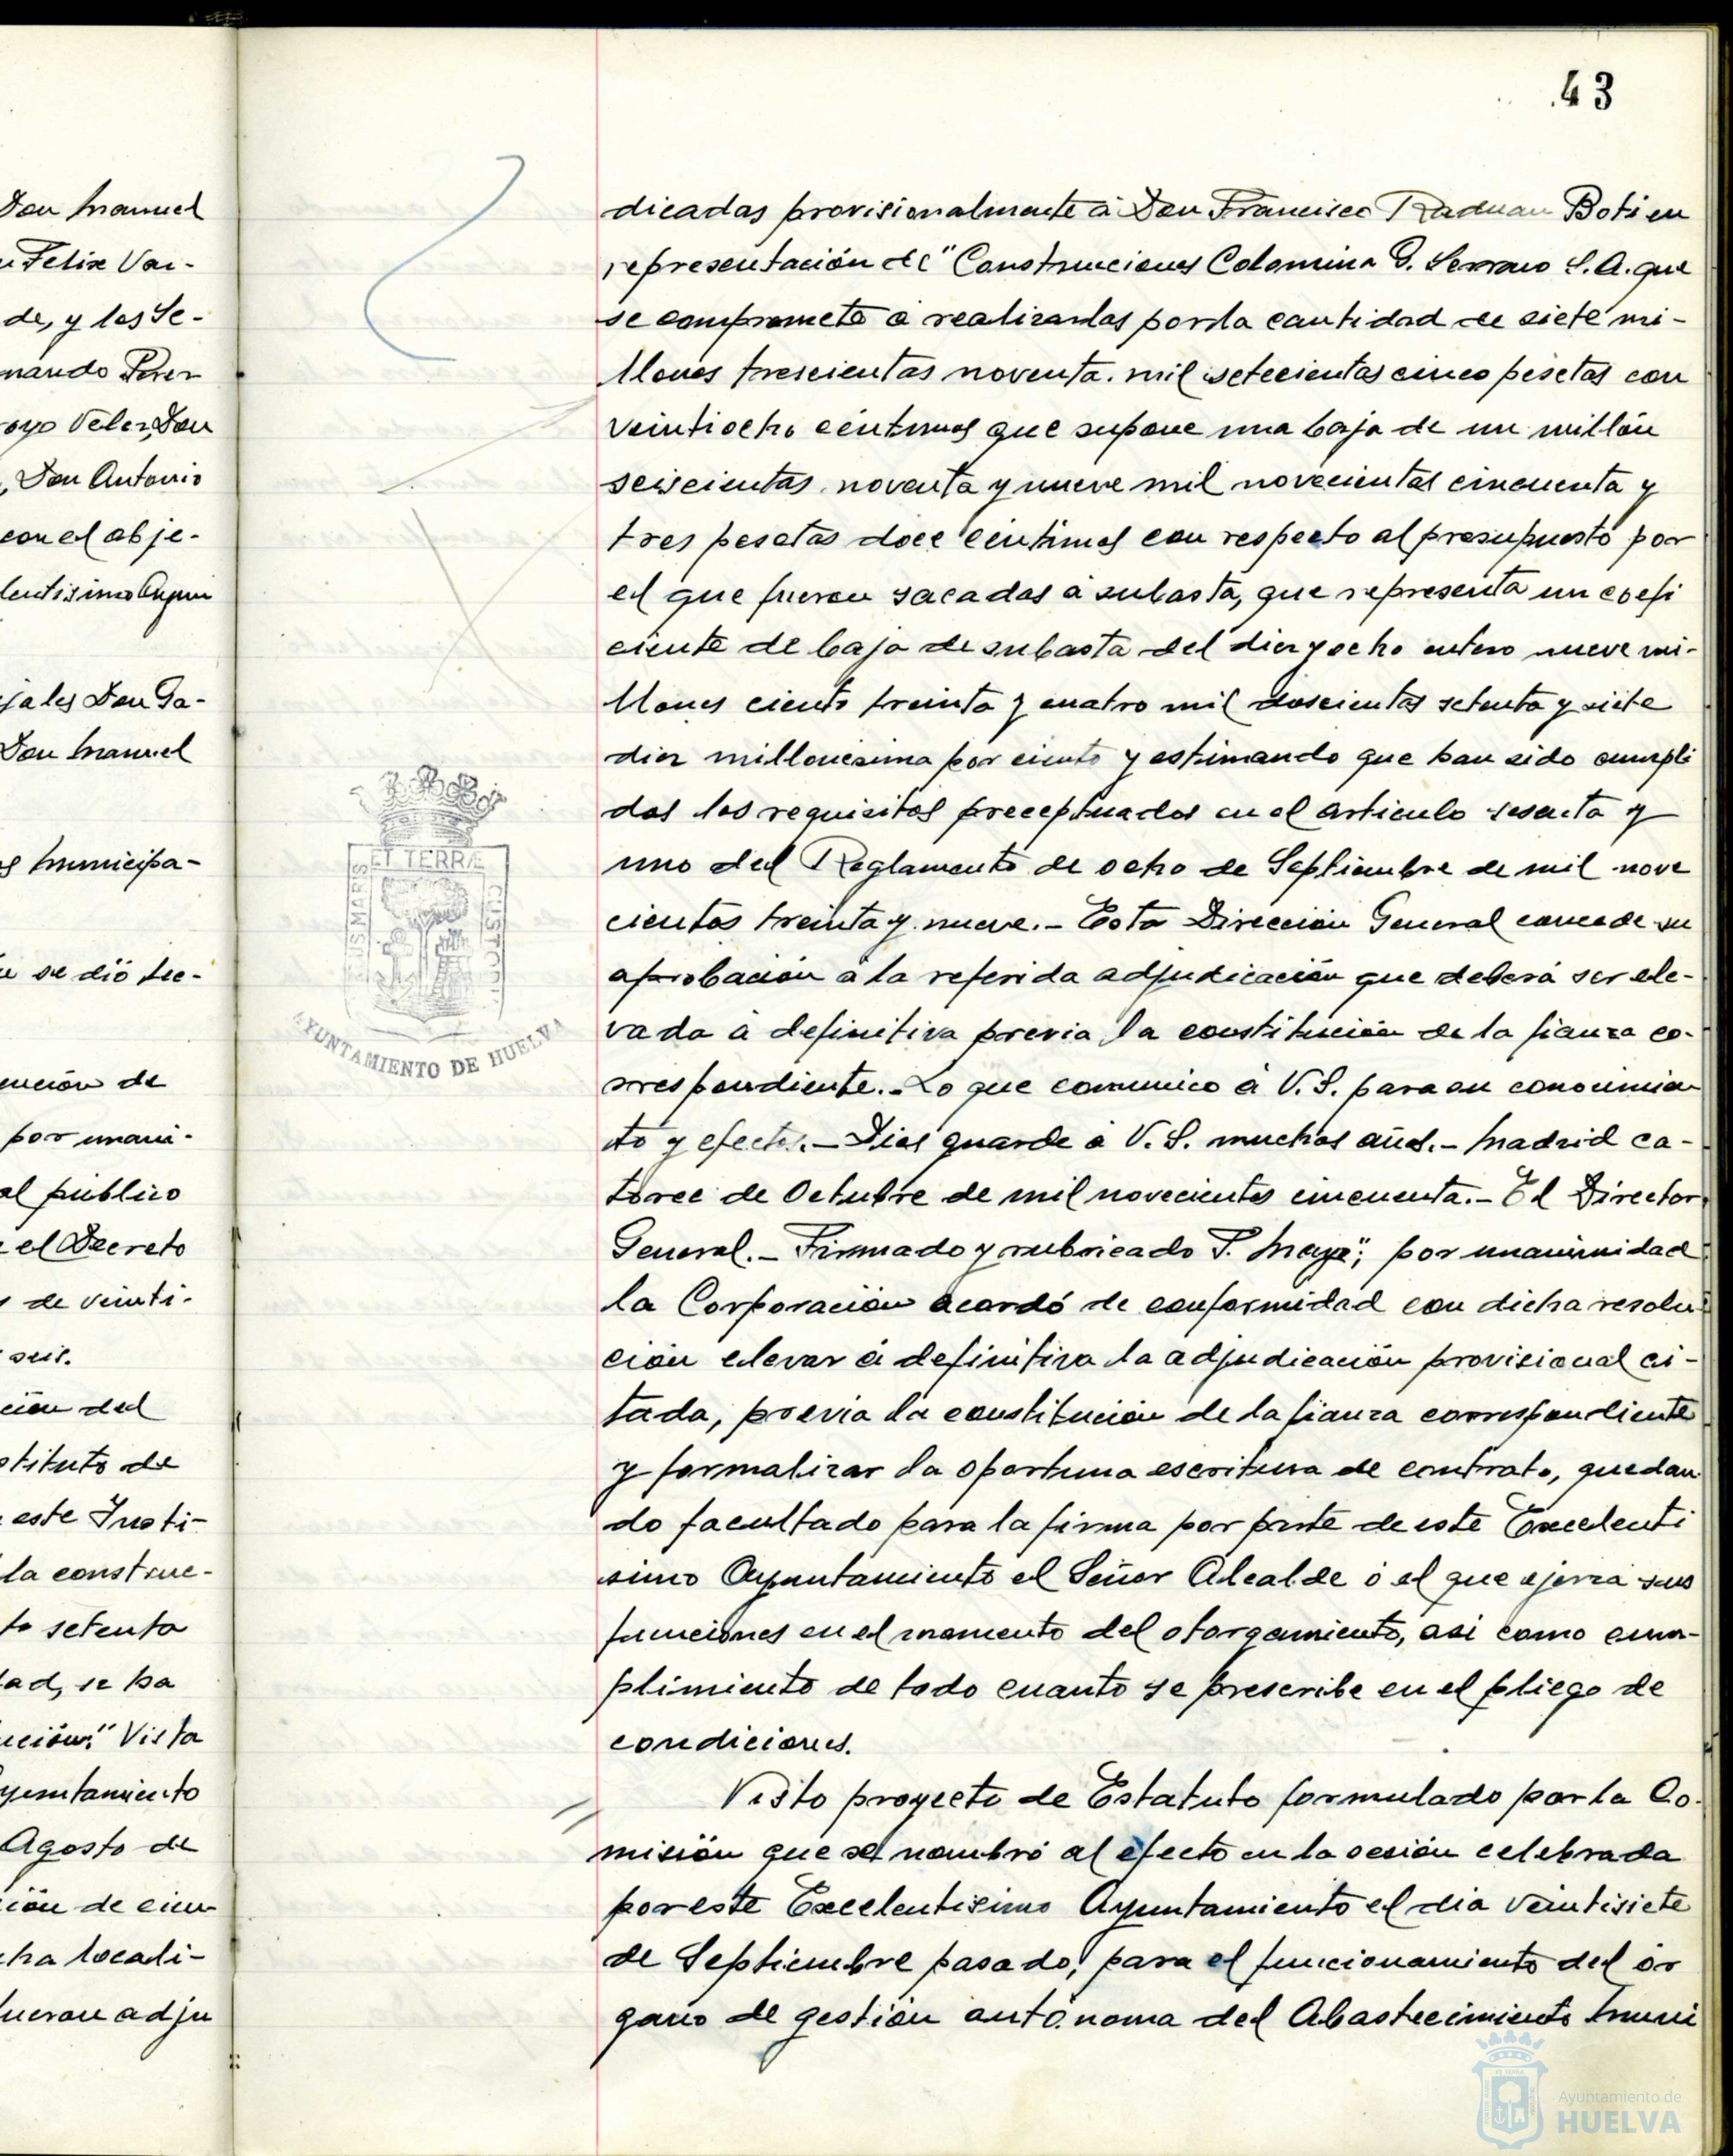 43
Don Manuel
Felix Var-
de, y los Se-
nando Perez
oyo Velez, Don
, Don Antonio
con el obje-
lentisimo Ayun
jales Don Ga-
Don Manuel
s Municipa-
se dió lec-
ención de
por unani-
al público
el Decreto
de veinti-
seis.
ción del
stituto de
este Insti-
la construc-
to setenta
dad, se ha
ución." Vista
yuntamiento
Agosto de
ión de cin-
cha locali-
fueron adju
dicadas provisionalmente á Don Francisco Raduan Boti en
representación de "Construcciones Colomina G. Serrano S.A. que
se compromete á realizarlas por la cantidad de siete mi-
llones trescientas noventa mil setecientas cinco pesetas con
veintiocho céntimos que supone una baja de un millón
seiscientas noventa y nueve mil novecientas cincuenta y
tres pesetas doce céntimos con respecto al presupuesto por
el que fueron sacadas á subasta, que representa un coefi
ciente de baja de subasta del diez y ocho entero nueve mi-
llones ciento treinta y cuatro mil doscientas setenta y siete
diez millonesima por ciento y estimando que han sido cumpli
dos los requisitos preceptuados en el articulo sesenta y
uno del Reglamento de ocho de Septiembre de mil nove
cientos treinta y nueve.- Esta Dirección General concede su
aprobación á la referida adjudicación que deberá ser ele-
vada á definitiva previa la constitución de la fianza co-
rrespondiente.- Lo que comunico á V.S. para su conocimien
to y efectos.- Dios guarde á V.S. muchos años.- Madrid ca-
torce de Octubre de mil novecientos cincuenta.- El Director
General.- Firmado y rubricado F. Mayo"; por unanimidad
la Corporación acordó de conformidad con dicha resolu-
ción elevar á definitiva la adjudicación provisional ci-
tada, previa la constitución de la fianza correspondiente
y formalizar la oportuna escritura de contrato, quedan-
do facultado para la firma por parte de este Excelenti
simo Ayuntamiento el Señor Alcalde ó el que ejerza sus
funciones en el momento del otorgamiento, asi como cum-
plimiento de todo cuanto se prescribe en el pliego de
condiciones.
Visto proyecto de Estatuto formulado por la Co-
misión que se nombró al efecto en la sesión celebrada
por este Excelentisimo Ayuntamiento el dia veintisiete
de Septiembre pasado, para el funcionamiento del ór
gano de gestión autónoma del Abastecimiento Muni
ET TERRÆ
US MARIS
CUSTODIT
AYUNTAMIENTO DE HUELVA
Ayuntamiento de
HUELVA